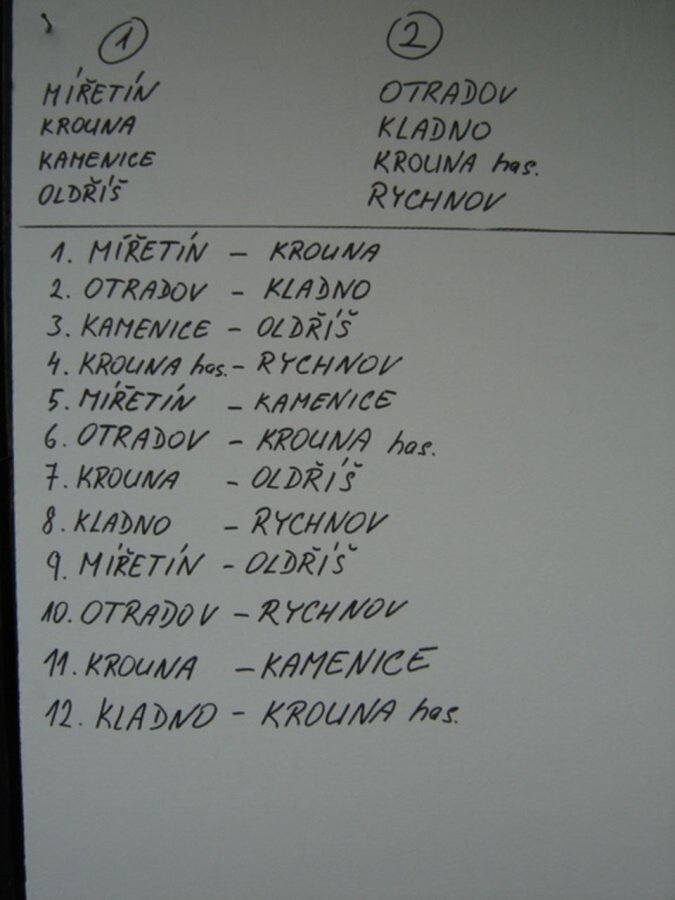 1 2
MÍŘETÍN OTRADOV
KROUNA KLADNO
KAMENICE KROUNA has.
OLDŘÍŠ RYCHNOV
1. MÍŘETÍN - KROUNA
2. OTRADOV - KLADNO
3. KAMENICE - OLDŘÍŠ
4. KROUNA has. - RYCHNOV
5. MÍŘETÍN - KAMENICE
6. OTRADOV - KROUNA has.
7. KROUNA - OLDŘÍŠ
8. KLADNO - RYCHNOV
9. MÍŘETÍN - OLDŘÍŠ
10. OTRADOV - RYCHNOV
11. KROUNA - KAMENICE
12. KLADNO - KROUNA has.